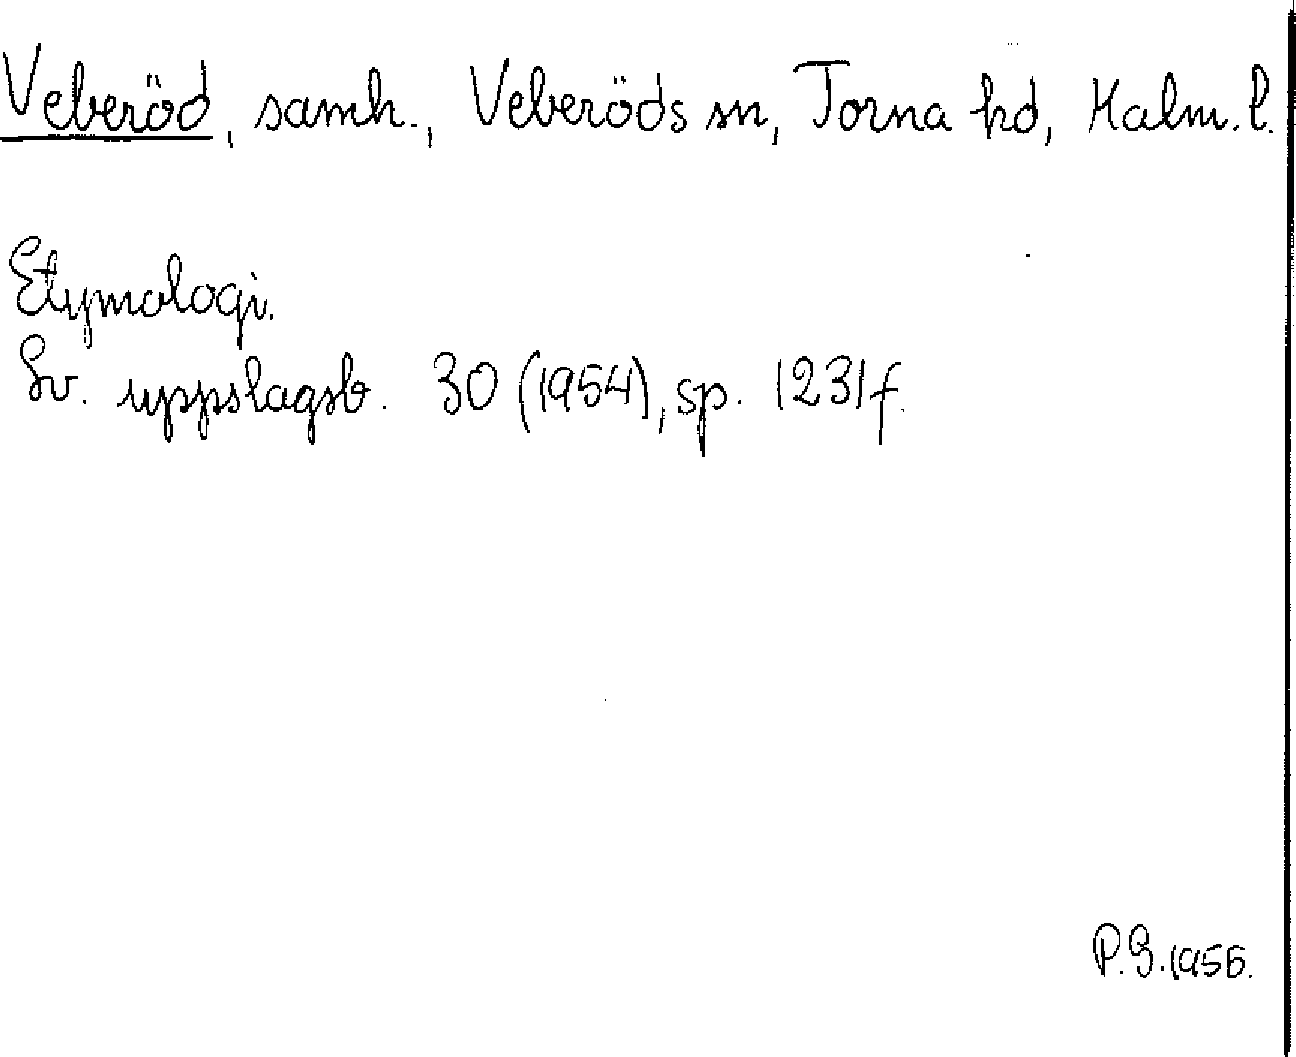 Veberöd, samh., Veberöds sn, Torna hd, Malm. l.
Etymologi.
Sv. uppslagsb. 30 (1954), sp. 1231 f.
P.G. 1956.